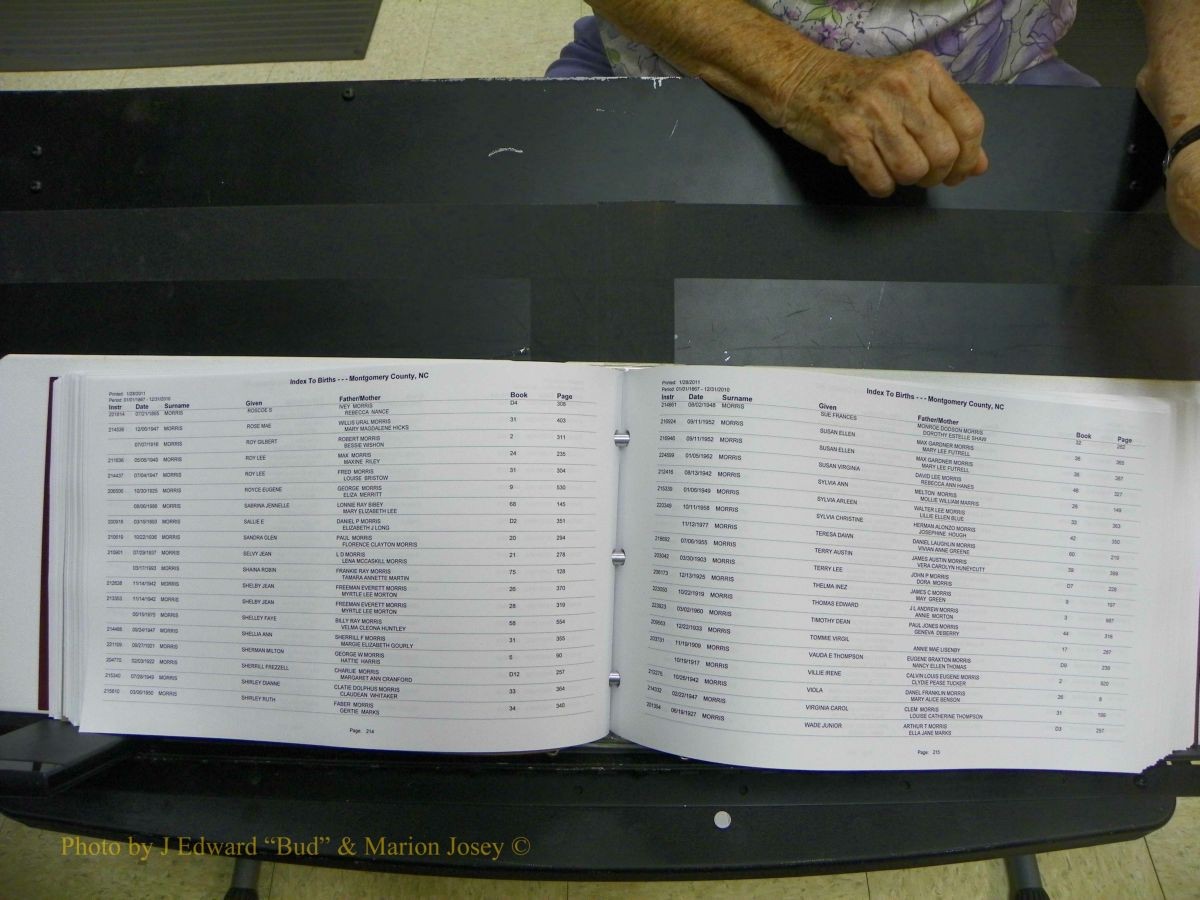 Index To Births - - - Montgomery County, NC
Printed: 1/28/2011
Period: 01/01/1867 - 12/31/2010
Instr Date Surname Given Father/Mother Book Page
221814 07/21/1895 MORRIS ROSCOE S IVEY MORRIS D4 308
REBECCA NANCE
214538 12/06/1947 MORRIS ROSE MAE WILLIS URAL MORRIS 31 403
MARY MAGDALENE HICKS
07/07/1916 MORRIS ROY GILBERT ROBERT MORRIS 2 311
BESSIE WISHON
MORRIS ROY LEE MAX MORRIS 24 235
MAXINE RILEY
214437 07/04/1947 MORRIS ROY LEE FRED MORRIS 31 304
LOUISE BRISTOW
10/30/1925 MORRIS ROYCE EUGENE GEORGE MORRIS 9 530
ELIZA MERRITT
MORRIS SABRINA JENNELLE LONNIE RAY SIBEY 68 145
MARY ELIZABETH LEE
MORRIS SALLIE E DANIEL P MORRIS D2 351
ELIZABETH J LONG
210619 10/22/1936 MORRIS SANDRA GLEN PAUL MORRIS 20 294
FLORENCE CLAYTON MORRIS
210901 07/29/1937 MORRIS SELVY JEAN L D MORRIS 21 278
LENA MCCASKILL MORRIS
03/17/1993 MORRIS SHAINA ROBIN FRANKIE RAY MORRIS 75 128
TAMARA ANNETTE MARTIN
212638 11/14/1942 MORRIS SHELBY JEAN FREEMAN EVERETT MORRIS 26 370
MYRTLE LEE MORTON
213353 11/14/1942 MORRIS SHELBY JEAN FREEMAN EVERETT MORRIS 28 319
MYRTLE LEE MORTON
MORRIS SHELLEY FAYE BILLY RAY MORRIS 58 554
VELMA CLEONA HUNTLEY
214488 MORRIS SHELLIA ANN SHERRILL F MORRIS 31 355
MARGIE ELIZABETH GOURLY
221109 09/27/1921 MORRIS SHERMAN MILTON GEORGE W MORRIS 6 90
HATTIE HARRIS
204770 02/03/1922 MORRIS SHERRILL FREZZELL CHARLIE MORRIS D12 257
MARGARET ANN CRANFORD
215340 07/28/1949 MORRIS SHIRLEY DIANNE CLATIE DOLPHUS MORRIS 33 364
CLAUDEAN WHITAKER
215610 03/06/1950 MORRIS SHIRLEY RUTH FABER MORRIS 34 340
GERTIE MARKS
Page: 214
Index To Births - - - Montgomery County, NC
Printed: 1/28/2011
Period: 01/01/1867 - 12/31/2010
Instr Date Surname Given Father/Mother Book Page
214861 08/02/1948 MORRIS SUE FRANCES MONROE DODSON MORRIS 32 262
DOROTHY ESTELLE SHAW
216924 09/11/1952 MORRIS SUSAN ELLEN MAX GARDNER MORRIS 36 365
MARY LEE FUTRELL
216946 09/11/1952 MORRIS SUSAN ELLEN MAX GARDNER MORRIS 36 387
MARY LEE FUTRELL
224599 01/05/1962 MORRIS SUSAN VIRGINIA DAVID LEE MORRIS 46 327
REBECCA ANN HANES
212416 08/13/1942 MORRIS SYLVIA ANN MELTON MORRIS 26 149
MOLLIE WILLIAM MARRIS
215339 01/06/1949 MORRIS SYLVIA ARLEEN WALTER LEE MORRIS 33 363
LILLIE ELLEN BLUE
220349 10/11/1958 MORRIS SYLVIA CHRISTINE HERMAN ALONZO MORRIS 42 350
JOSEPHINE HOUGH
11/12/1977 MORRIS TERESA DAWN DANIEL LAUGHLIN MORRIS 60 219
VIVIAN ANNE GREENE
218692 07/06/1955 MORRIS TERRY AUSTIN JAMES AUSTIN MORRIS 39 399
VERA CAROLYN HUNEYCUTT
203042 03/30/1903 MORRIS TERRY LEE JOHN P MORRIS D7 228
DORA MORRIS
206173 12/13/1925 MORRIS THELMA INEZ JAMES C MORRIS 9 197
MAY GREEN
223050 10/22/1919 MORRIS THOMAS EDWARD J L ANDREW MORRIS 3 987
ANNIE MORTON
223923 03/02/1960 MORRIS TIMOTHY DEAN PAUL JONES MORRIS 44 316
GENEVA DEBERRY
209563 12/22/1933 MORRIS TOMMIE VIRGIL 17 297
ANNIE MAE LISENBY
203731 11/19/1909 MORRIS VAUDA E THOMPSON EUGENE BRAXTON MORRIS D9 239
NANCY ELLEN THOMAS
10/19/1917 MORRIS VILLIE IRENE CALVIN LOUIS EUGENE MORRIS 2 920
CLYDIE PEASE TUCKER
212275 10/26/1942 MORRIS VIOLA DANEL FRANKLIN MORRIS 26 8
MARY ALICE BENSON
214332 02/22/1947 MORRIS VIRGINIA CAROL CLEM MORRIS 31 199
LOUISE CATHERINE THOMPSON
201354 06/19/1927 MORRIS WADE JUNIOR ARTHUR T MORRIS D3 257
ELLA JANE MARKS
Page: 215
Photo by J Edward “Bud” & Marion Josey ©